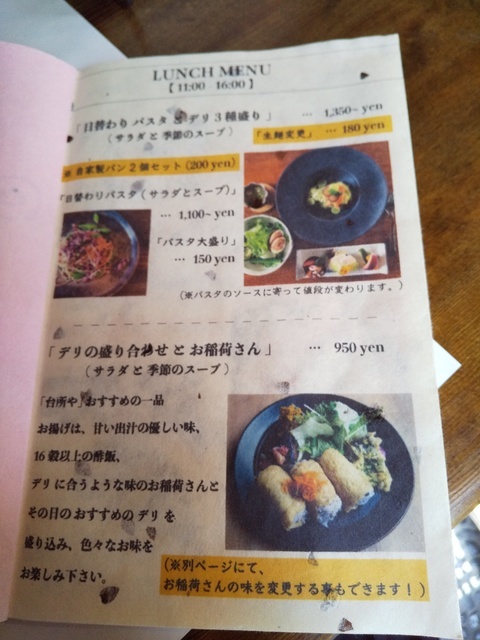 LUNCH MENU
【 11:00 - 16:00 】
「日替わり パスタ と デリ３種盛り 」 … 1,350~ yen
（サラダ と 季節のスープ ） 「生麺変更」 … 180 yen
※ 自家製パン２個セット (200 yen)
「日替わりパスタ ( サラダとスープ)」
… 1,100~ yen
「パスタ大盛り」
… 150 yen
（※パスタのソースに寄って値段が変わります。）
「 デリの盛り合わせ と お稲荷さん 」 … 950 yen
（ サラダ と 季節のスープ ）
「台所や」おすすめの一品
お揚げは、甘い出汁の優しい味、
16 穀以上の酢飯、
デリ に合うような味のお稲荷さんと
その日の おすすめの デリ を
盛り込み、色々なお味を
お楽しみ下さい。
（※別ページにて、
お稲荷さんの味を変更する事もできます！）